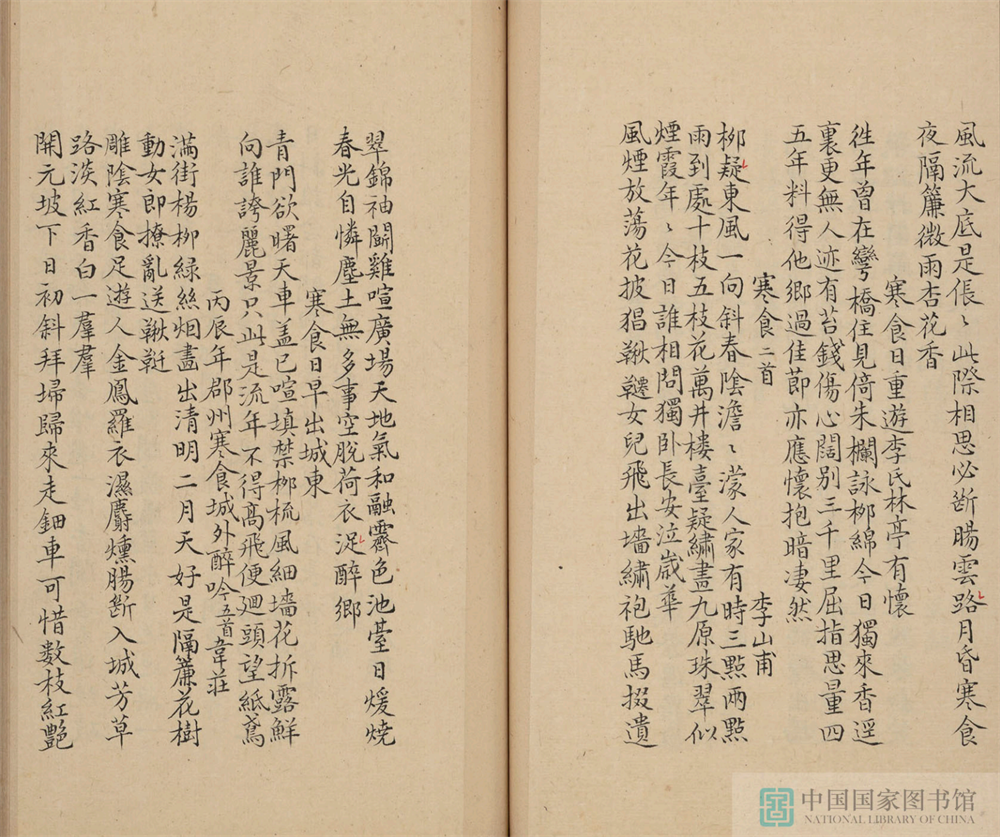 風流大底是倀〻此際相思必断腸雲路月昏寒食
夜隔簾微雨杏花香
寒食日重遊李氏林亭有懷
徃年曾在彎橋住見倚朱欄詠栁綿今日獨來香逕
裏更無人迹有苔錢傷心闊別三千里屈指思量四
五年料得他鄉過佳節亦應懷抱暗凄然
寒食二首 李山甫
栁疑東風一向斜春陰澹〻濛人家有時三點兩點
雨到處十枝五枝花萬井楼臺疑繡畫九原珠翠似
煙霞年〻今日誰相問獨卧長安泣歳華
風煙放蕩花披猖鞦韆女兒飛出墻繡袍馳馬掇遺
翠錦袖鬬雞喧廣場天地氣和融霽色池臺日煖燒
春光自憐塵土無多事空脫荷衣浞醉鄉
寒食日早出城東
青門欲曙天車盖已喧填禁栁梳風細墻花折露鮮
向誰誇麗景只此是流年不得髙飛便廻頭望紙鳶
丙辰年郡州寒食城外醉吟五首韋莊
滿街楊栁緑絲烟畫出清明二月天好是隔簾花樹
動女郎撩亂送鞦韆
雕陰寒食足遊人金鳳羅衣濕麝燻腸断入城芳草
路淡紅香白一羣羣
開元坡下日初斜拜埽歸來走鈿車可惜数枝紅艶
中国国家图书馆
NATIONAL LIBRARY OF CHINA